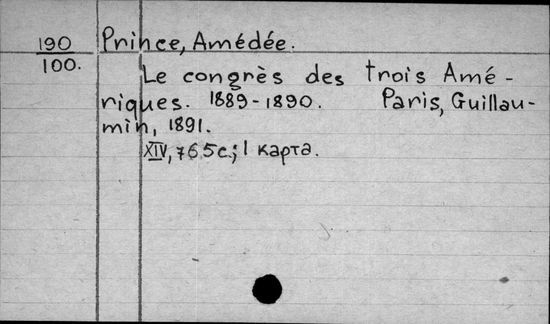 190
100.
Prince, Amédée.
Le congrès des trois Amé-
riques. 1889-1890. Paris, Guillau-
min, 1891.
XIV, 765c.; 1 карта.